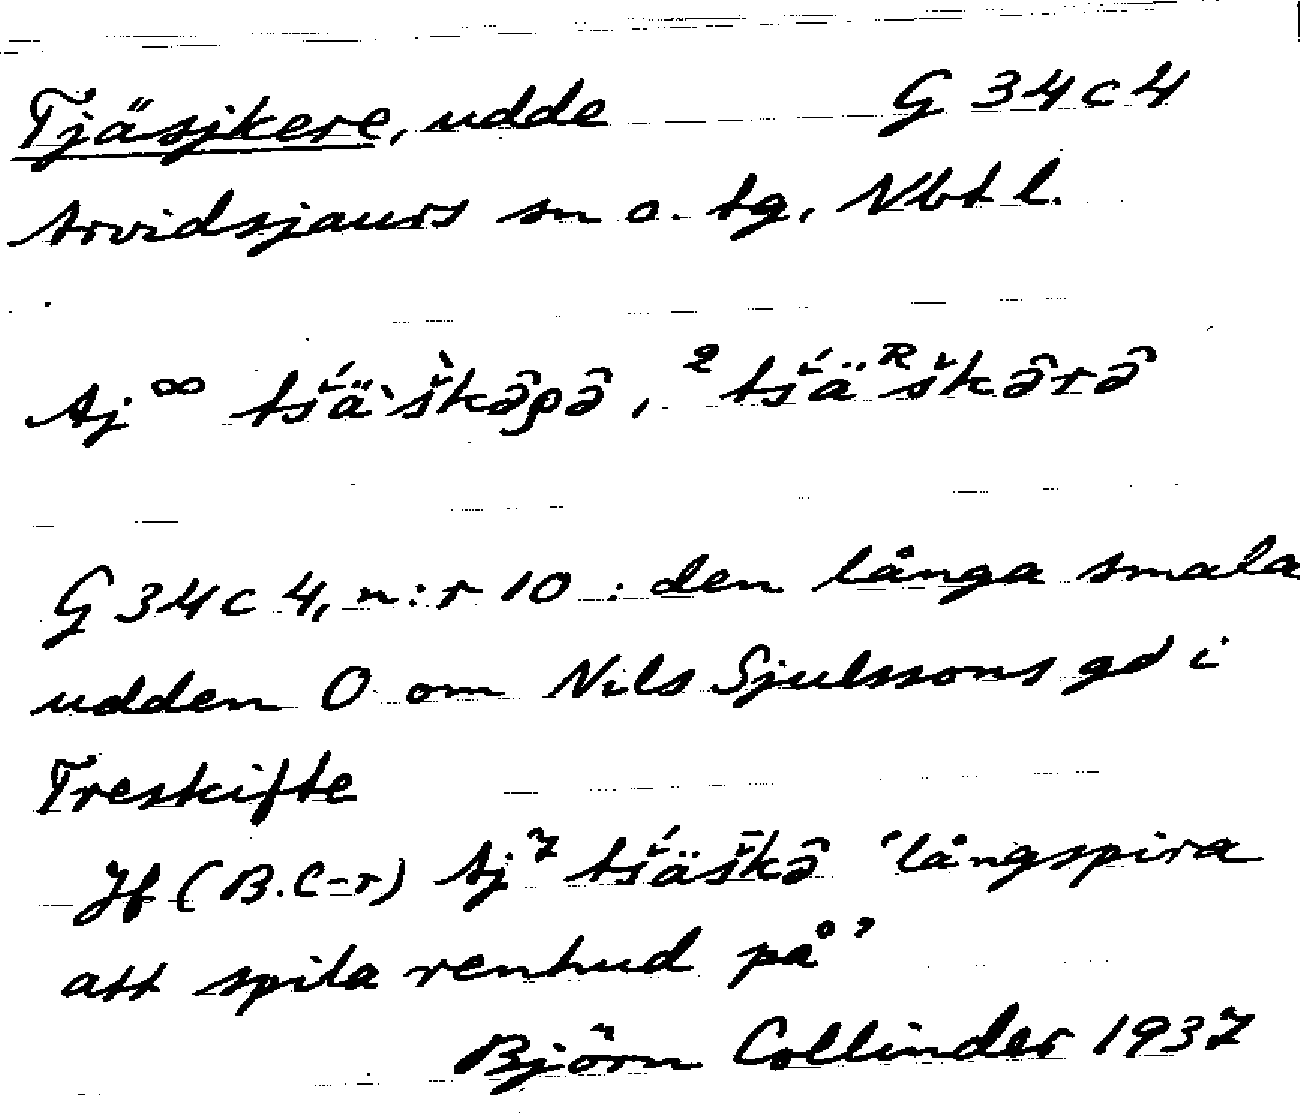 Tjäsjkere, udde G 34 c 4
Arvidsjaurs sn o. tg, Nbt l.
Aj ∞
G 34 c 4, n:r 10 : den långa smala
udden O om Nils Sjulssons gd i
Treskifte
Jf (B. C-r) Aj 7 'långspira
att spila renhud på'
Björn Collinder 1937